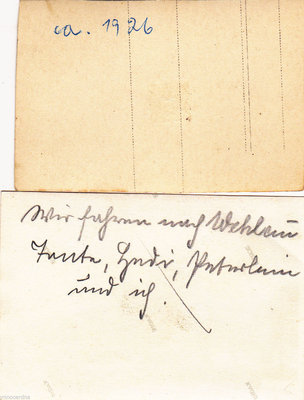 ca. 1926
Wir fahren nach Wehlau
Tante, Hedi, Peterlein
und ich.